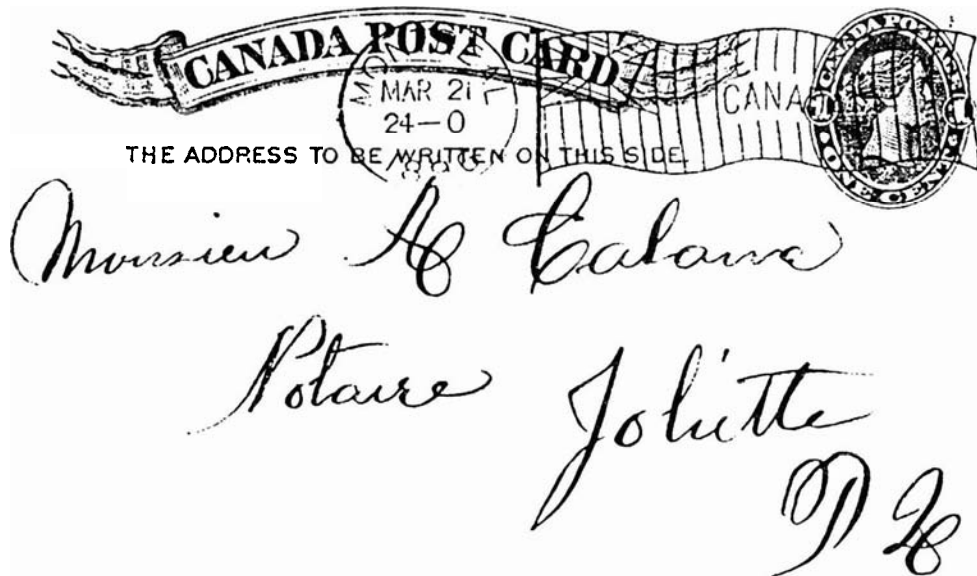 CANADA POST CARD
MAR 21
24-0
CANA
CANADA POSTAGE
1 1
ONE CENT
THE ADDRESS TO BE WRITTEN ON THIS SIDE.
Monsieur
Notaire Joliette
P Q